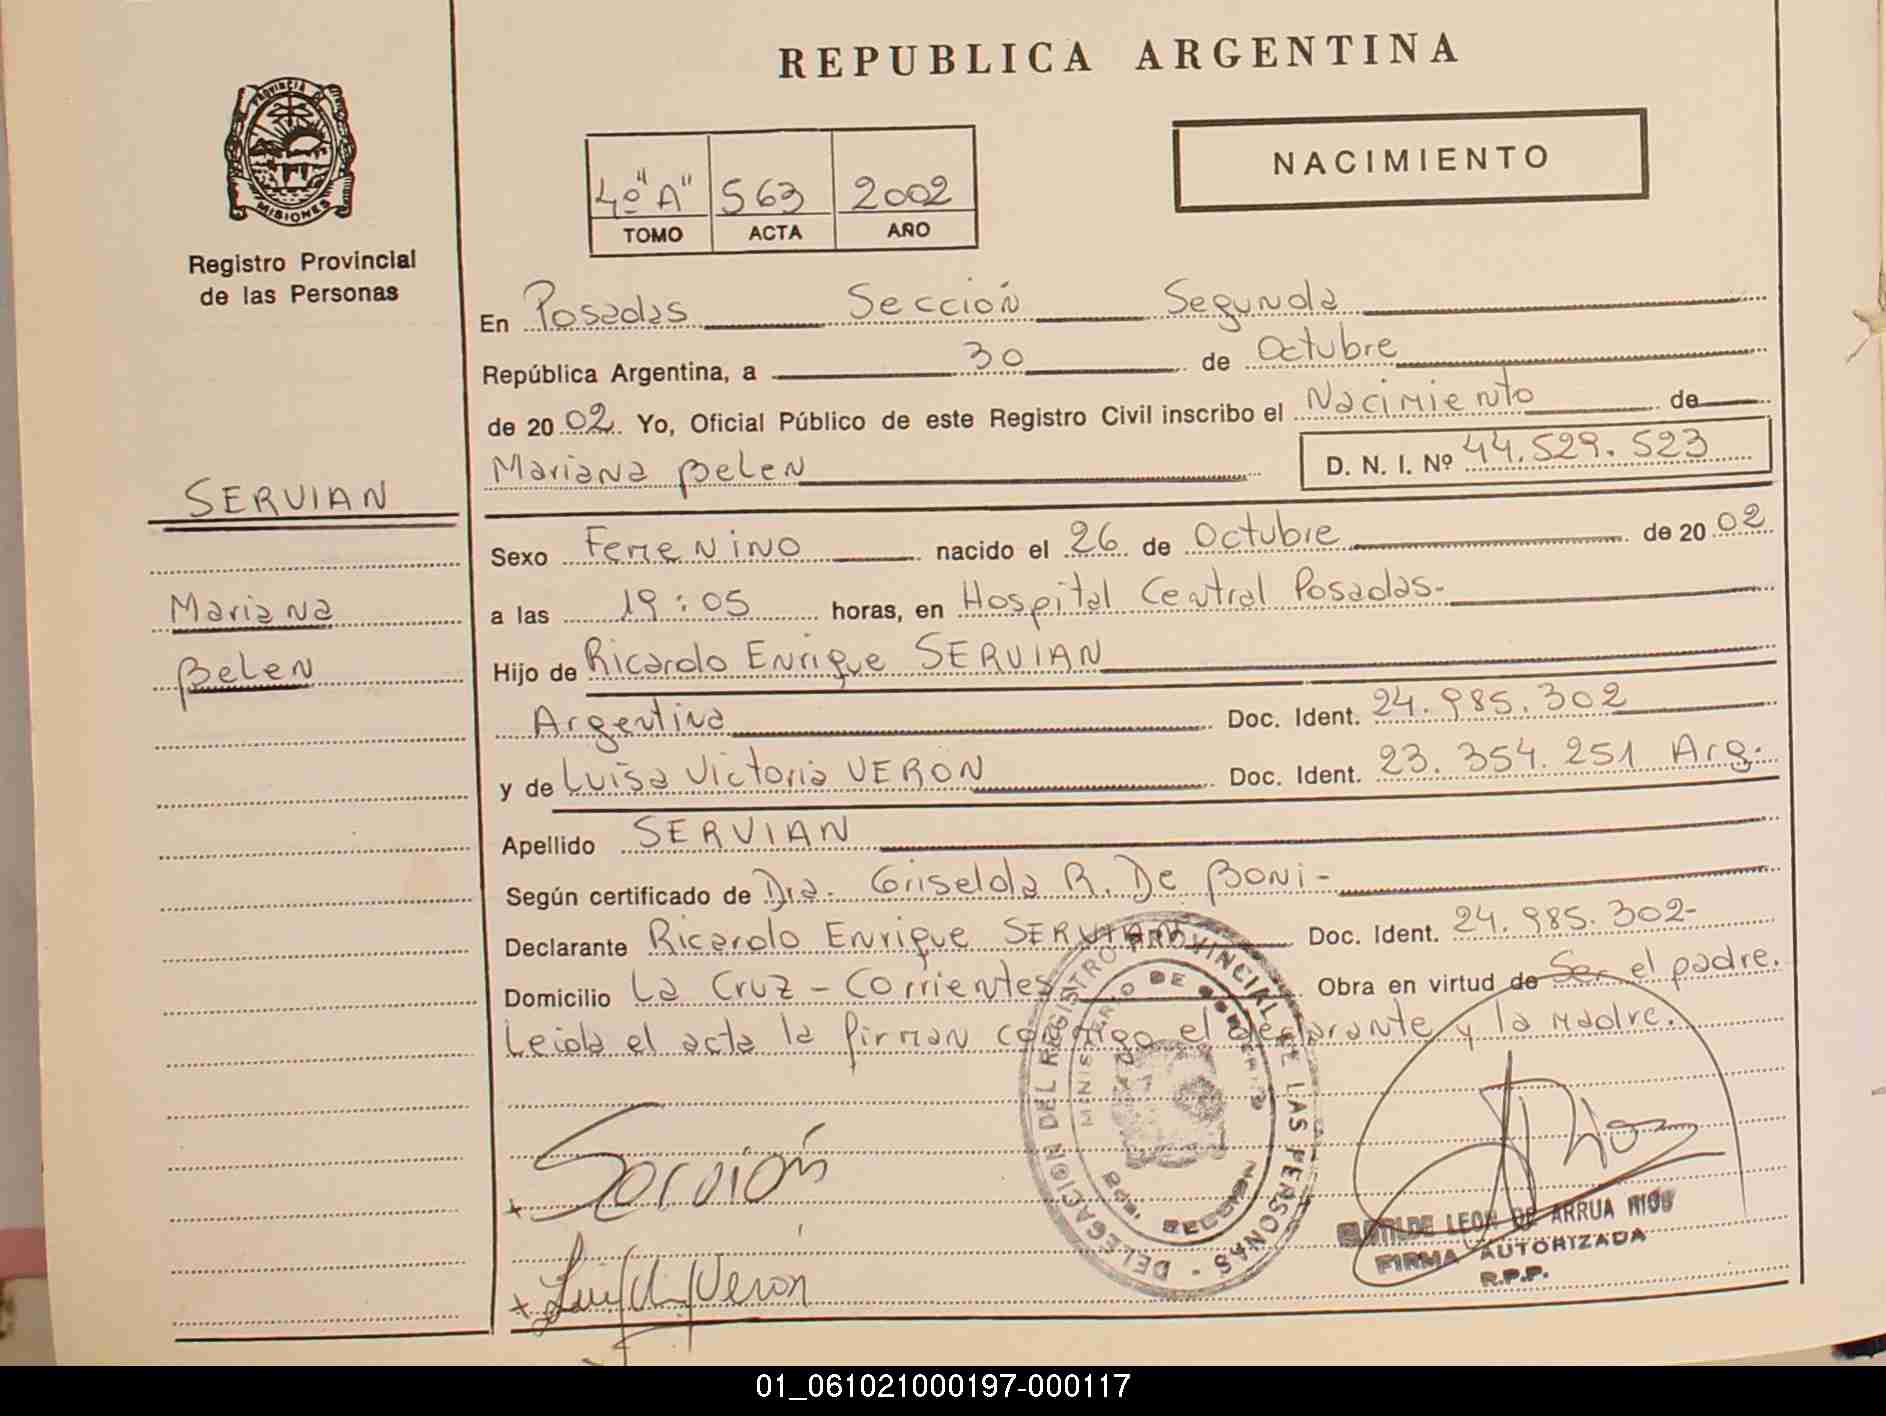 REPUBLICA ARGENTINA
PROVINCIA DE
MISIONES
Registro Provincial
de las Personas
4º "A" 563 2002
TOMO ACTA AÑO
NACIMIENTO
En Posadas Sección Segunda
República Argentina, a 30 de Octubre
de 2002. Yo, Oficial Público de este Registro Civil inscribo el Nacimiento de
Mariana Belen D. N. I. Nº 44.529.523
SERVIAN
Mariana
Belen
Sexo Femenino nacido el 26 de Octubre de 2002
a las 19:05 horas, en Hospital Central Posadas-
Hijo de Ricardo Enrique SERVIAN
Argentina Doc. Ident. 24.985.302
y de Luisa Victoria VERON Doc. Ident. 23.354.251 Arg.
Apellido SERVIAN
Según certificado de Dra. Griselda R. De Boni-
Declarante Ricardo Enrique SERVIAN Doc. Ident. 24.985.302-
Domicilio La Cruz - Corrientes Obra en virtud de Ser el padre.
Leida el acta la firman conmigo el declarante y la madre.
DELEGACION DEL REGISTRO PROVINCIAL DE LAS PERSONAS
MINISTERIO DE GOBIERNO
SECCION
Servián
Verón
LEON DE ARRUA RIOS
FIRMA AUTORIZADA
R.P.P.
01_061021000197-000117